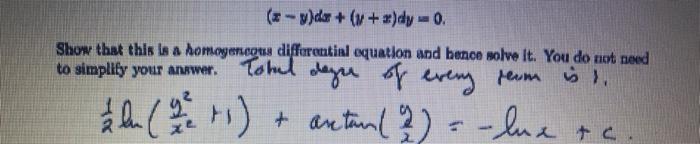 (x − y)dx + (y + x)dy = 0.
Show that this is a homogeneous differential equation and hence solve it. You do not need
to simplify your answer. Total degree of every term is 1.
½ ln(y²/x² + 1) + arctan(y/x) = −ln x + c.